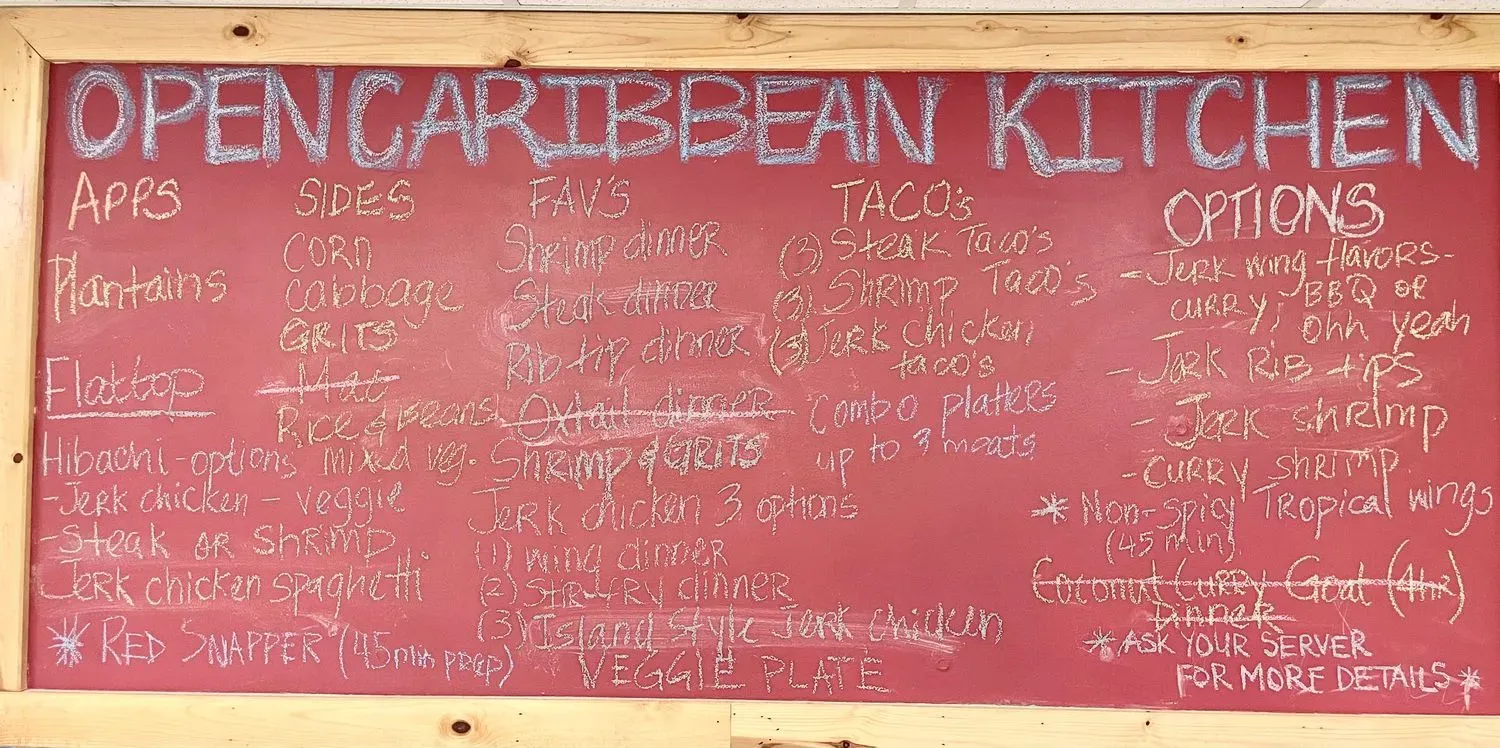 OPEN CARIBBEAN KITCHEN
APPS
Plantains
Flattop
Hibachi-options
-Jerk chicken - veggie
-Steak or Shrimp
Jerk chicken spaghetti
* RED SNAPPER (45min prep)
SIDES
CORN
Cabbage
GRITS
Mac
Rice & Beans
mixed veg.
FAV'S
Shrimp dinner
Steak dinner
Rib tip dinner
Oxtail dinner
SHRIMP & GRITS
Jerk chicken 3 options
(1) wing dinner
(2) STIR-FRY dinner
(3) Island Style Jerk chicken
VEGGIE PLATE
TACO's
(3) Steak Taco's
(3) Shrimp Taco's
(3) Jerk chicken
taco's
Combo platters
up to 3 meats
OPTIONS
- Jerk wing flavors-
curry, BBQ or
ohh yeah
- Jerk Rib tips
- Jerk shrimp
- curry shrimp
* Non-spicy Tropical wings
(45 min)
Coconut Curry Goat (1hr)
Dinner
* ASK YOUR SERVER
FOR MORE DETAILS *